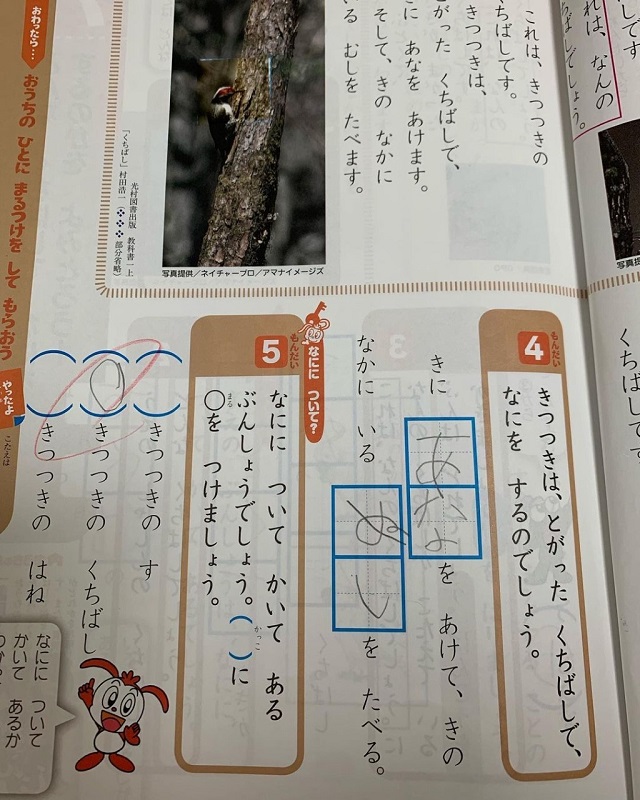 です
れは、なんの
ちばしでしょう。
これは、きつつきの
くちばしです。
きつつきは、
とがった くちばしで、
に あなを あけます。
そして、きの なかに
いる むしを たべます。
写真提供/ネイチャープロ/アマナイメージズ
光村図書出版 教科書一上
「くちばし」村田浩一(❖❖❖部分省略)
もんだい
4
きつつきは、とがった くちばしで、
なにを するのでしょう。
きに あなを あけて、きの
なかに いる ぬしを たべる。
なにに ついて?
もんだい
5
なにに ついて かいて ある
ぶんしょうでしょう。( )に
かっこ
○を つけましょう。
まる
( )きつつきの す
(○)きつつきの くちばし
( )きつつきの はね
なにに ついて
かいて あるか
おわったら…
おうちの ひとに まるつけを して もらおう
やったよ
こたえは